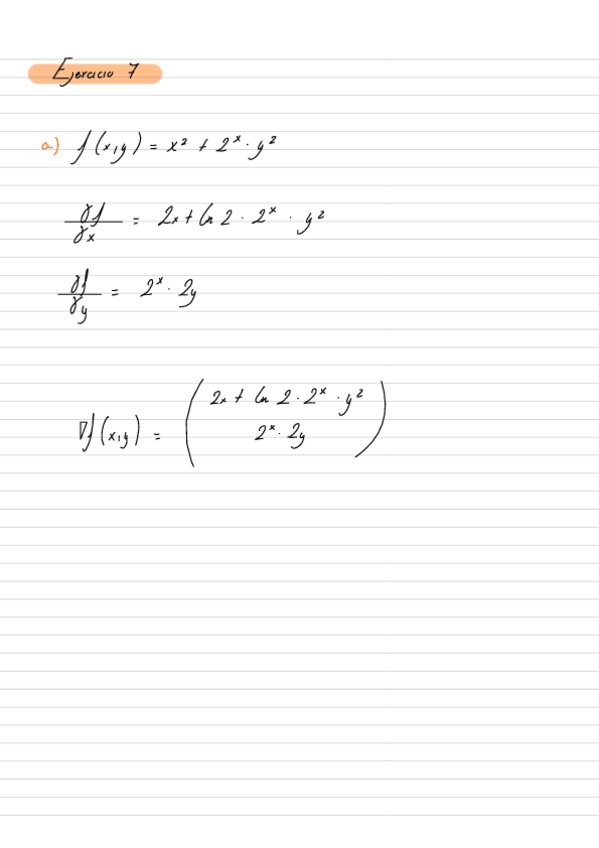 Ejercicio 7
a) f(x,y) = x² + 2ˣ · y²
∂f/∂x = 2x + ln 2 · 2ˣ · y²
∂f/∂y = 2ˣ · 2y
∇f(x,y) = ( 2x + ln 2 · 2ˣ · y²
2ˣ · 2y )